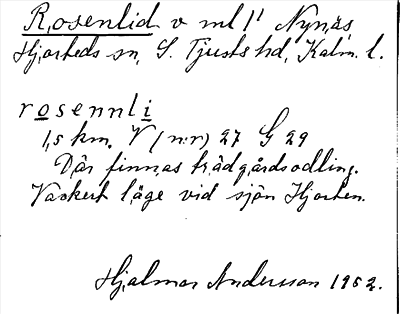 Rosenlid v ml 1¹ Nynäs,
Hjorteds sn, S. Tjusts hd, Kalm. l.
rosennli
1,5 km. V (n:r) 27 G 29
Där finnas trädgårdsodling.
Vackert läge vid sjön Hjorten.
Hjalmar Andersson 1952.